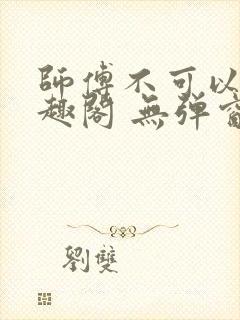 師傅不可以
趣閣 無彈窗
劉雙